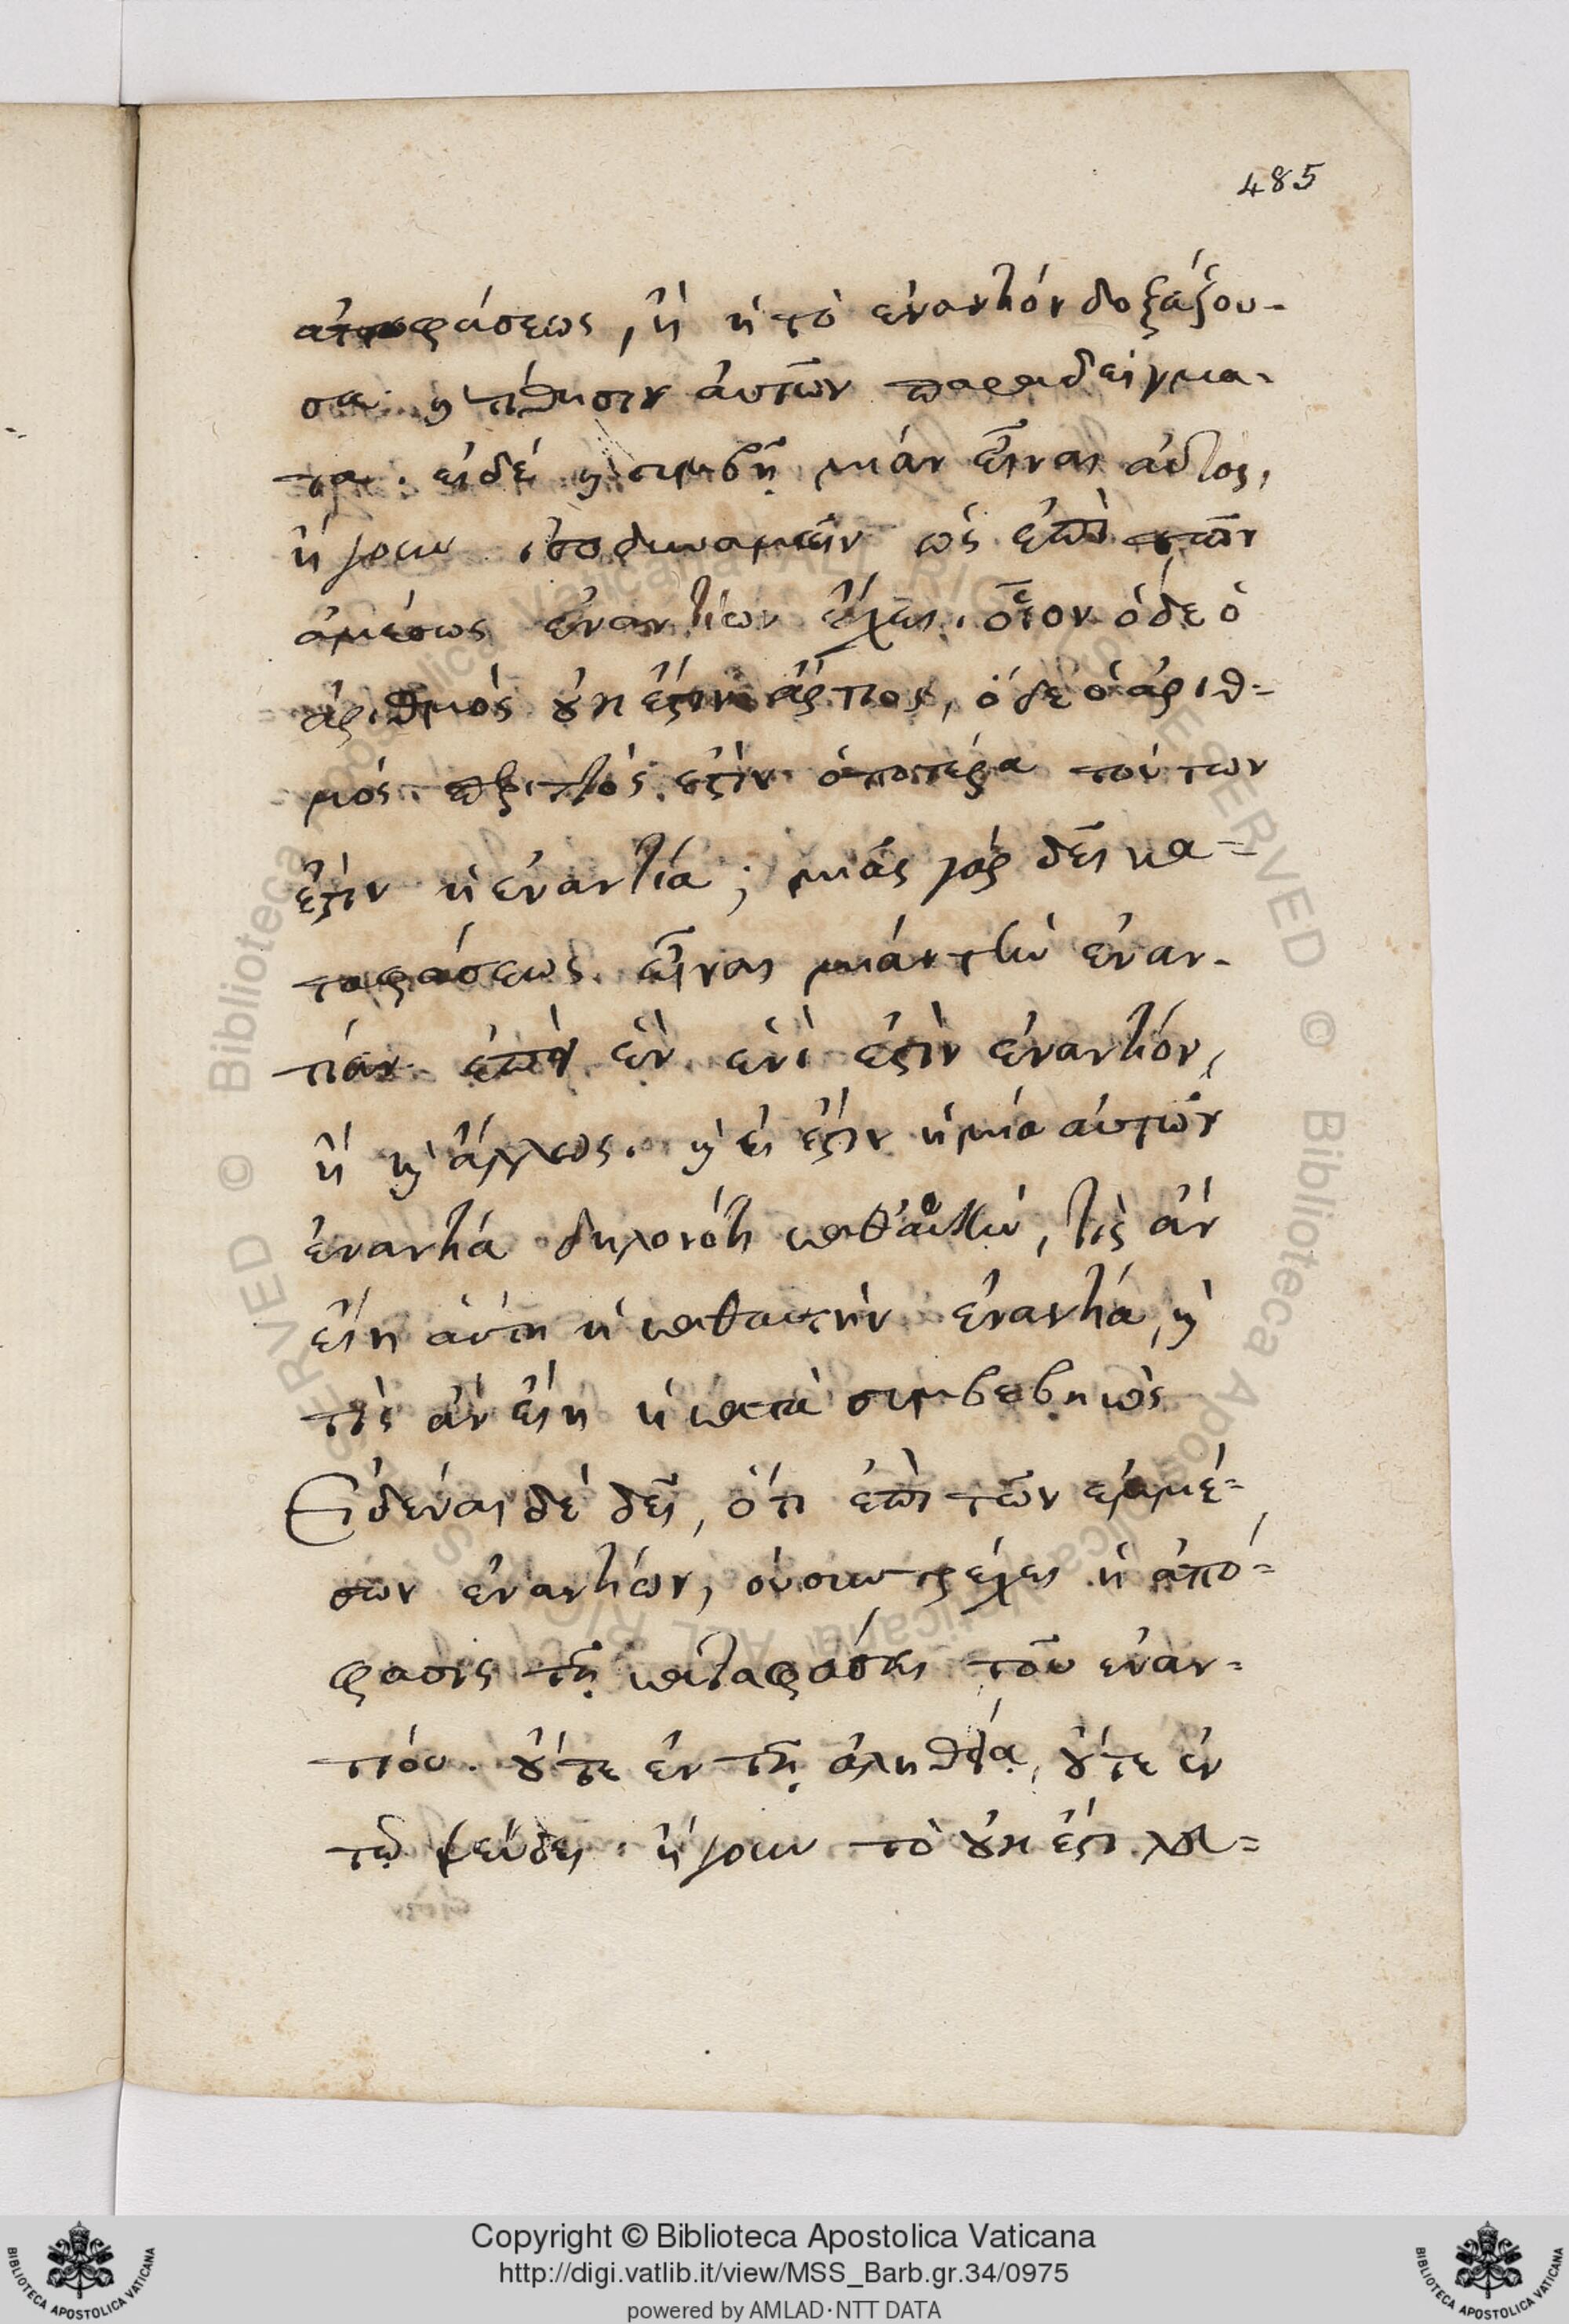 485
ἀποφάσεως, ἢ ἡ τὸ ἐναντίον δοξάζου-
σα. καὶ τίθησιν αὐτῶν παραδείγμα-
τα. εἰδέ καὶ συμβῇ μίαν εἶναι αὐτὰς,
ἤγουν ἰσοδυναμεῖν ὡς ἐπὶ τῶν
ἀμέσως ἐναντίων ἔχει. οἷον ὅδε ὁ
ἀριθμὸς οὐκ ἔστιν ἄρτιος, ὅδε ὁ ἀριθ-
μός περιττός ἐστὶν ὁποτέρα τούτων
ἐστὶν ἡ ἐναντία; μιᾶς γὰρ δεῖ κα-
ταφάσεως εἶναι μίαν τὴν ἐναν-
τίαν ἐπεὶ ἓν ἑνὶ ἐστὶν ἐναντίον,
ἢ καὶ ἄλλως. καὶ εἰ ἔστιν ἡ μία αὐτῶν
ἐναντία δηλονότι καθ' αὑτὴν, τίς ἂν
εἴη αὐτη ἡ καθαυτὴν ἐναντία, καὶ
τίς ἂν εἴη ἡ κατὰ συμβεβηκός
Εἰδέναι δὲ δεῖ, ὅτι ἐπὶ τῶν ἐμμέ-
σων ἐναντίων, οὐ συντρέχει ἡ ἀπό-
φασις τῇ καταφάσει τοῦ ἐναν-
τίου. οὔτε ἐν τῇ ἀληθείᾳ, οὔτε ἐν
τῷ ψεύδει. ἤγουν τὸ οὐκ ἔστι λευ-
Copyright © Biblioteca Apostolica Vaticana
http://digi.vatlib.it/view/MSS_Barb.gr.34/0975
powered by AMLAD·NTT DATA